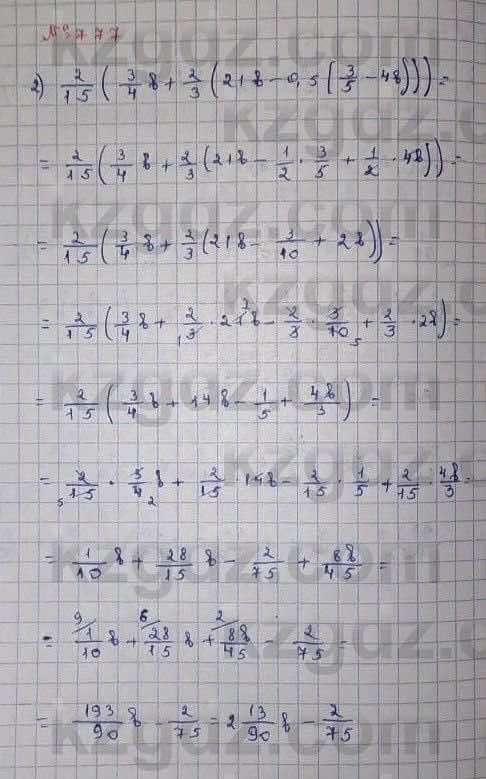 № 777
2) 2/15 (3/4 b + 2/3 (21b - 0,5 (3/5 - 4b))) =
= 2/15 (3/4 b + 2/3 (21b - 1/2 · 3/5 + 1/2 · 4b)) =
= 2/15 (3/4 b + 2/3 (21b - 3/10 + 2b)) =
= 2/15 (3/4 b + 2/3 · 21b - 2/3 · 3/10 + 2/3 · 2b) =
= 2/15 (3/4 b + 14b - 1/5 + 4b/3) =
= 2/15 · 3/4 b + 2/15 · 14b - 2/15 · 1/5 + 2/15 · 4b/3 =
= 1/10 b + 28/15 b - 2/75 + 8b/45 =
= 1/10 b + 28/15 b + 8b/45 - 2/75 =
= 193/90 b - 2/75 = 2 13/90 b - 2/75
kzgdz.com